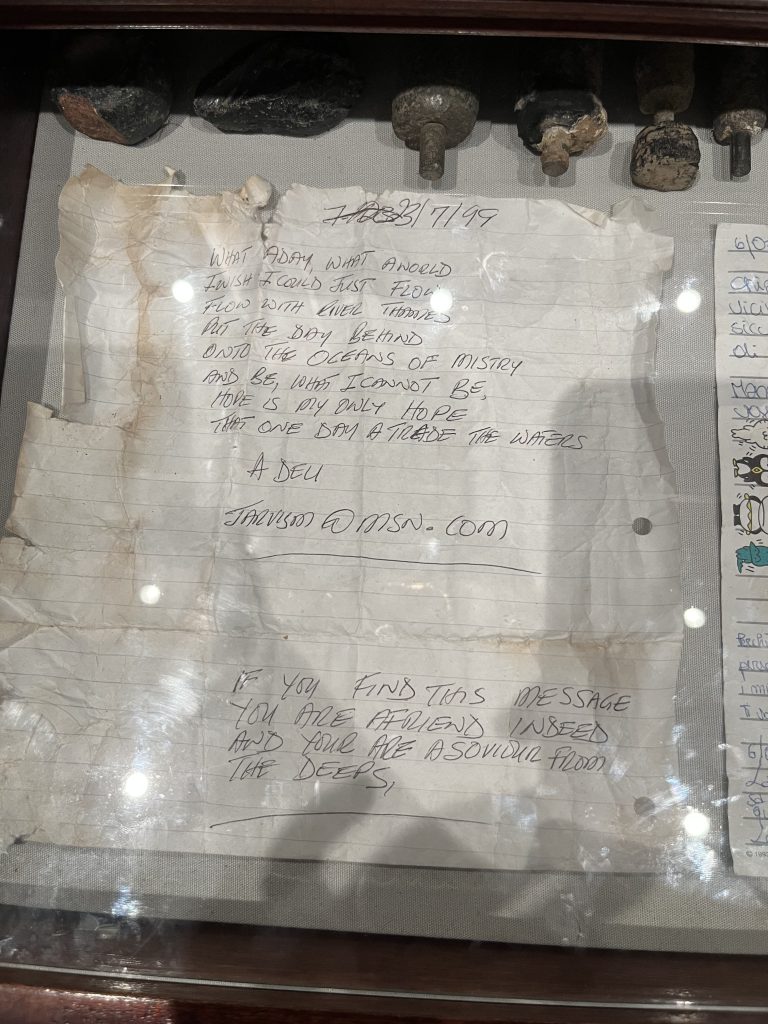 3/7/99
WHAT A DAY, WHAT A WORLD
I WISH I COULD JUST FLOW
FLOW WITH RIVER THAMES
PUT THE DAY BEHIND
ONTO THE OCEANS OF MISTRY
AND BE, WHAT I CANNOT BE,
HOPE IS MY ONLY HOPE
THAT ONE DAY A TRADE THE WATERS
A DELI
JARVISM@MSN.COM
IF YOU FIND THIS MESSAGE
YOU ARE A FRIEND INDEED
AND YOUR ARE A SOVIOUR FROM
THE DEEPS,